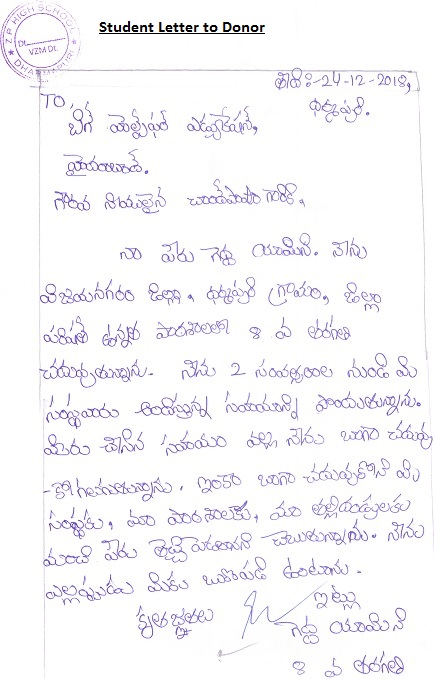 Student Letter to Donor
Z.P HIGH SCHOOL
Dt.
VZM Dt.
DHARMAPURI
తేది:-24-12-2018,
ధర్మపురి.
TO,
బిగ్ హెల్ప్‌ఫుల్ ఎడ్యుకేషన్,
హైదరాబాద్.
గౌరవ నీయులైన చాంద్‌పాషా గారికి,
నా పేరు గెద్ద యామిని. నేను
విజయనగరం జిల్లా, ధర్మపురి గ్రామం, జిల్లా
పరిషత్ ఉన్నత పాఠశాలలో 8 వ తరగతి
చదువుతున్నాను. నేను 2 సంవత్సరాల నుండి మీ
సంస్థవారు అందిస్తున్న సహాయాన్ని పొందుతున్నాను.
మీరు చేసిన సహాయం వల్ల నేను బాగా చదువు
-కోగలుగుతున్నాను. ఇంకా బాగా చదువుకొని మీ
సంస్థకు, మా పాఠశాలకు, మా తల్లిదండ్రులకు
మంచి పేరు తెచ్చి పెడతానని చెబుతున్నాను. నేను
ఎల్లప్పుడు మీకు ఋణపడి ఉంటాను.
కృతజ్ఞతలు
ఇట్లు
గెద్ద యామిని
8 వ తరగతి